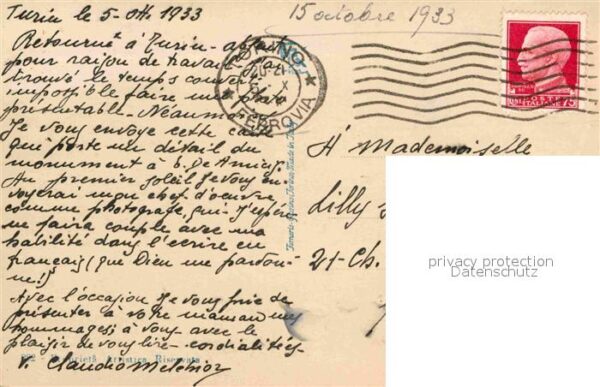 Turin le 5-Ott. 1933
15 octobre 1933
Retourné à Turin
pour raison de travail
trouvé le temps couvert
impossible faire une
présentable. Néanm
Je vous envoye cette car
qui porte un détail du
monument à E. De Amicis
Au premier soleil Je vous en
voyerai mon chef d'oeuvre
comme photografe, qui, J'espère
ne faira couple avec ma
habilité dans l'écrire en
français (que Dieu me pardon-
ne!)
Avec l'occasion Je vous prie de
présenter à votre maman mes
hommages; à vous avec le
plaisir de vous lire - cordialités
V. Claudio Melchior
Proprietà Artistica Riservata
TORINO
FERROVIA
POSTE
ITALIANE
75
A Mademoiselle
Lilly
21-Ch.
privacy protection
Datenschutz